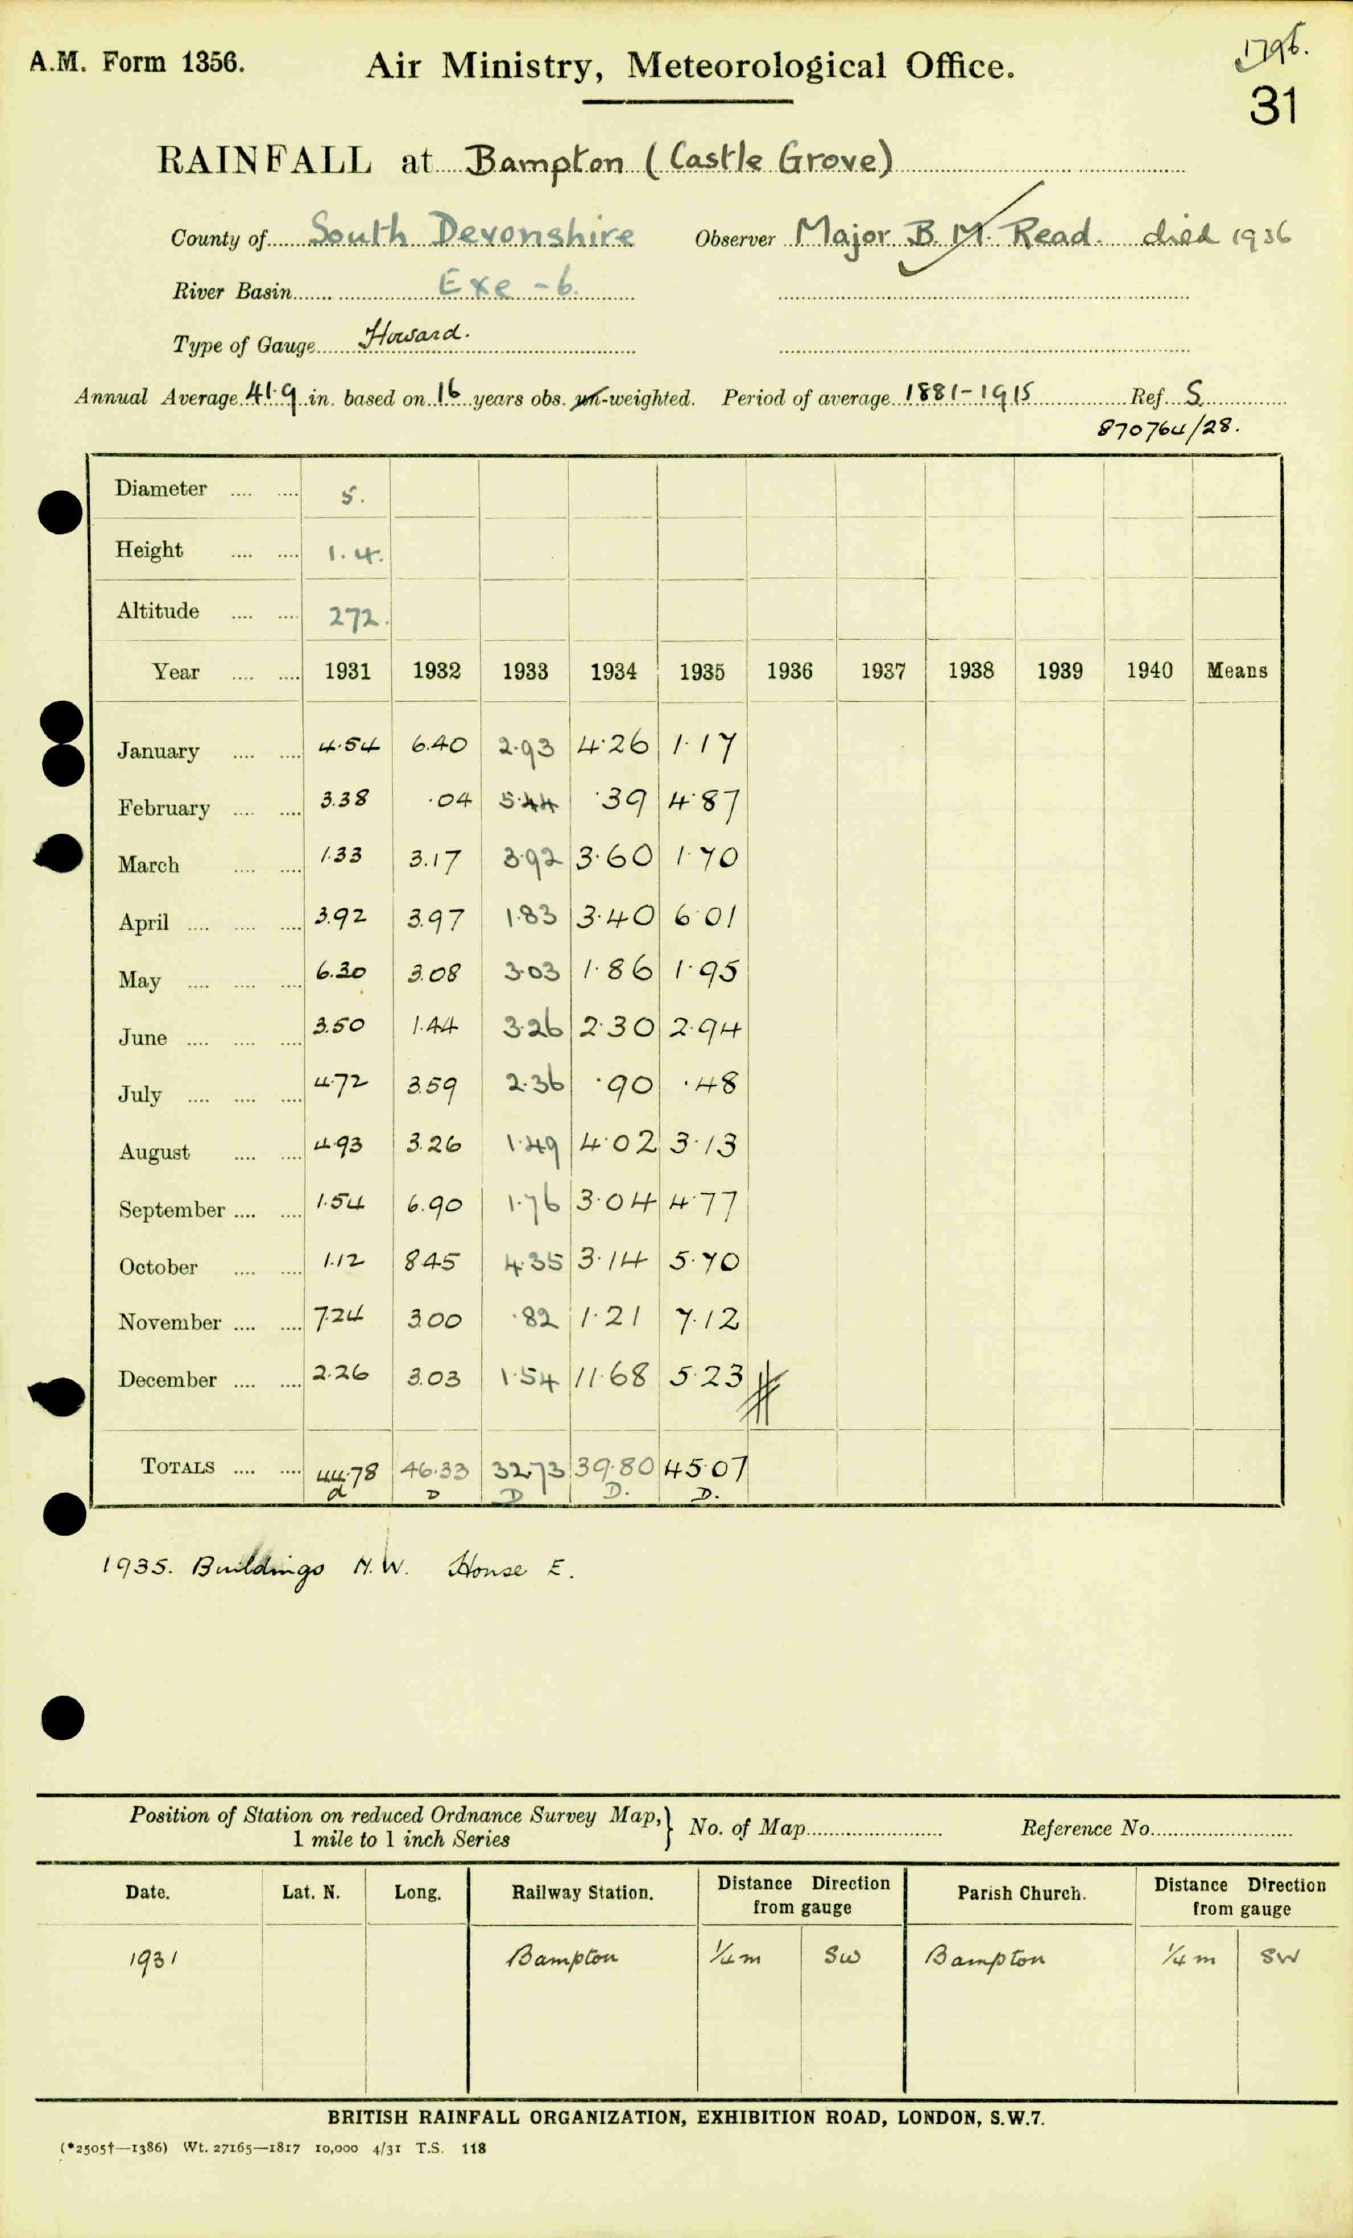 1796.
A.M. Form 1356. Air Ministry, Meteorological Office.
31
RAINFALL at Bampton (Castle Grove)
County of South Devonshire Observer Major B. M. Read. died 1936
River Basin Exe - 6.
Type of Gauge Howard.
Annual Average 41·9 in. based on 16 years obs. un-weighted. Period of average 1881-1915 Ref. S
870764/28.
Diameter .... .... 5.
Height .... .... 1.4.
Altitude .... .... 272.
Year .... .... 1931 1932 1933 1934 1935 1936 1937 1938 1939 1940 Means
January .... .... 4·54 6.40 2·93 4·26 1·17
February .... .... 3.38 ·04 5·44 ·39 4·87
March .... .... 1.33 3.17 3·92 3·60 1·70
April .... .... .... 3.92 3.97 1·83 3·40 6·01
May .... .... .... 6.30 3.08 3·03 1·86 1·95
June .... .... .... 3.50 1.44 3·26 2·30 2·94
July .... .... .... 4·72 3.59 2·36 ·90 ·48
August .... .... 4.93 3.26 1·49 4·02 3·13
September .... .... 1.54 6.90 1·76 3·04 4·77
October .... .... 1.12 8.45 4·35 3·14 5·70
November .... .... 7.24 3.00 ·82 1·21 7·12
December .... .... 2.26 3.03 1·54 11·68 5·23
TOTALS .... .... 44.78 46.33 32.73 39·80 45·07
d D D D. D.
1935. Buildings N.W. House E.
Position of Station on reduced Ordnance Survey Map,} No. of Map Reference No.
1 mile to 1 inch Series
Date. Lat. N. Long. Railway Station. Distance Direction from gauge Parish Church. Distance Direction from gauge
1931 Bampton ¼ m SW Bampton ¼ m SW
BRITISH RAINFALL ORGANIZATION, EXHIBITION ROAD, LONDON, S.W.7.
(*2505†—1386) Wt. 27165—1817 10,000 4/31 T.S. 118